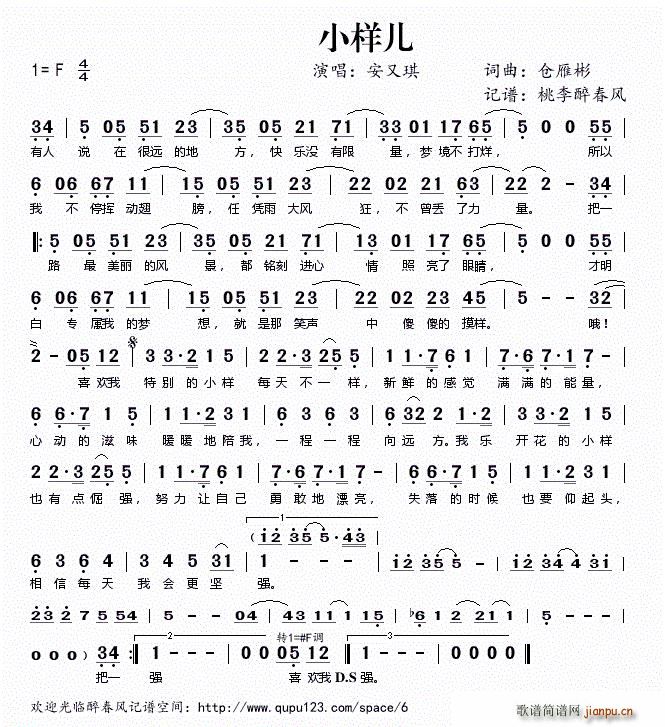 小样儿
1=F 4/4 演唱：安又琪 词曲：仓雁彬
记谱：桃李醉春风
34 | 5 05 51 23 | 35 05 21 71 | 33 01 17 65 | 5 0 0 55 |
有人 说 在 很远 的地 方，快 乐没 有限 量，梦 境不 打烊， 所以
6 06 67 11 | 15 05 51 23 | 22 02 21 63 | 22 2 - 34 |
我 不 停挥 动翅 膀，任 凭雨 大风 狂，不 曾丢 了力 量。 把一
5 05 51 23 | 35 05 21 71 | 13 01 17 65 | 5 0 0 55 |
路 最 美丽 的风 景，都 铭刻 进心 情 照 亮了 眼睛， 才明
6 06 67 11 | 15 05 51 23 | 22 02 23 45 | 5 - - 32 |
白 专 属我 的梦 想，就 是那 笑声 中 傻 傻的 摸样。 哦！
2 - 05 12 | 3 3·2 1 5 | 2 2·3 25 5 | 1 1·7 6 1 | 5 7·6 7 - |
喜 欢我 特别的小样 每天不一样，新鲜的感觉 满满的能量，
6 6·7 1 5 | 1 3·2 2 1 | 6 3 6 3 | 6 32 2 1 2 | 3 3·2 1 5 |
心动的滋味 暖暖地陪我，一程一程 向远方。我乐 开花的小样
2 2·3 25 5 | 1 1·7 6 1 | 5 7·6 7 - | 6 6·7 1 5 | 1 3·2 2 1 |
也有点倔强，努力让自己 勇敢地漂亮， 失落的时候 也要仰起头，
1
（12 35 5·43
6 3 6 4 | 3 4 5 31 | 1 - - - | 12 35 5 - | 34 31 5 - |
相信每天 我会更坚 强。
23 2 7 5 54 | 5 - - 04 | 43 11 1 15 | ♭6 1 2 21 1 | 5 - - - |
2 转1=#F调 3
0 0 0） 34 :| 1 - - - | 0 0 05 12 | 1 - - - | 0 0 0 0 ||
把一 强 喜 欢我 D.S 强。
欢迎光临醉春风记谱空间：http://www.qupu123.com/space/6
歌谱简谱网
jianpu.cn